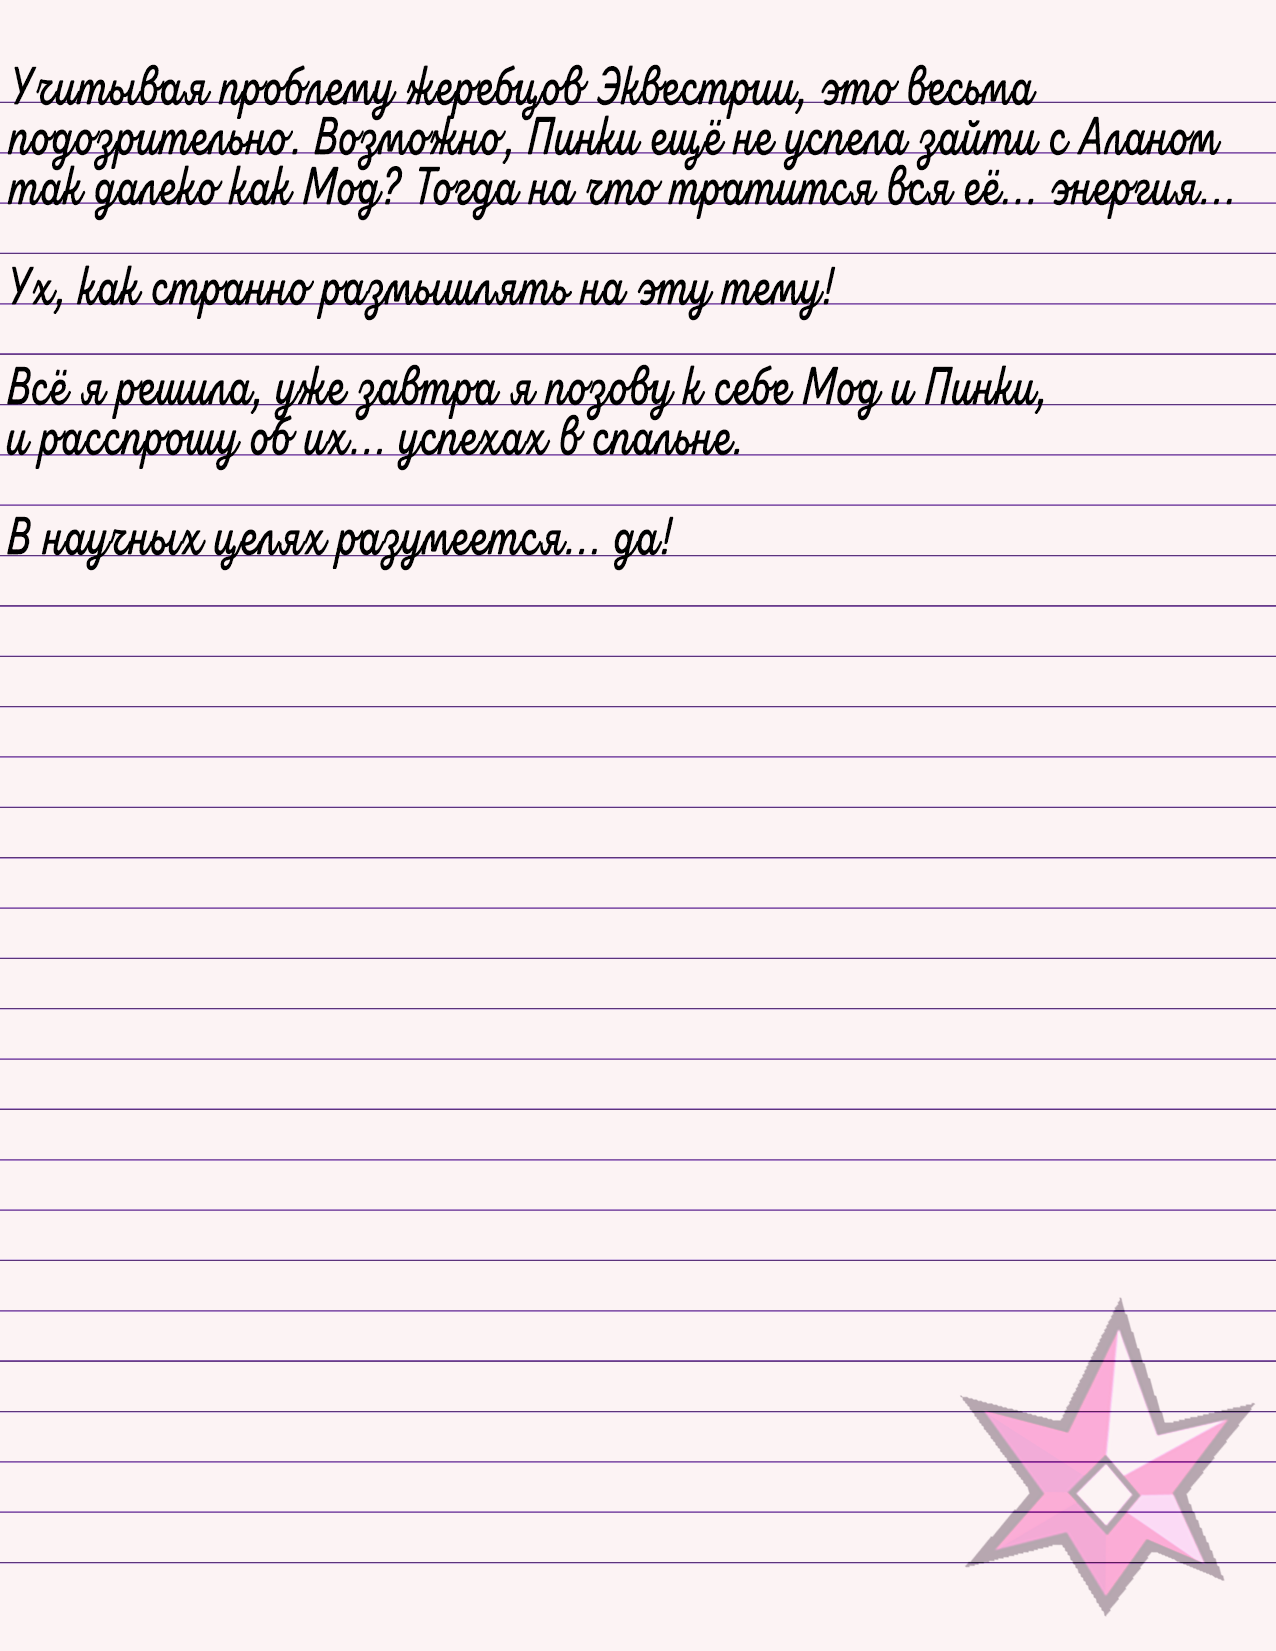 Учитывая проблему жеребцов Эквестрии, это весьма
подозрительно. Возможно, Пинки ещё не успела зайти с Аланом
так далеко как Мод? Тогда на что тратится вся её... энергия...
Ух, как странно размышлять на эту тему!
Всё я решила, уже завтра я позову к себе Мод и Пинки,
и расспрошу об их... успехах в спальне.
В научных целях разумеется... да!